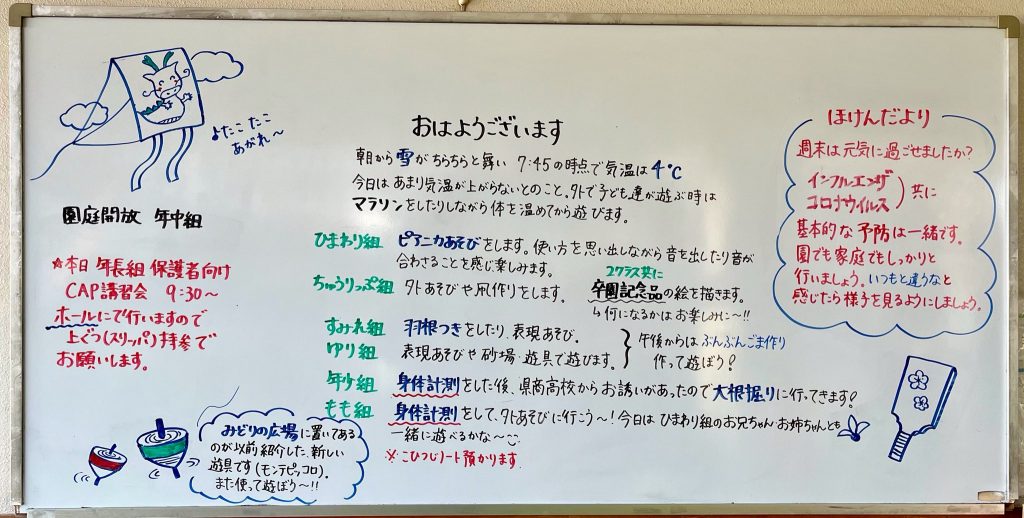 ♪たこ たこ
あがれ〜
園庭開放 年中組
☆本日 年長組 保護者向け
CAP講習会 9:30〜
ホールにて行いますので
上ぐつ(スリッパ)持参で
お願いします。
おはようございます
朝から雪がちらちらと舞い 7:45の時点で気温は4℃
今日はあまり気温が上がらないとのこと。外で子ども達が遊ぶ時は
マラソンをしたりしながら体を温めてから遊びます。
ひまわり組 ピアニカあそびをします。使い方を思い出しながら音を出したり音が
合わさることを感じ楽しみます。
ちゅうりっぷ組 外あそびや凧作りをします。
2クラス共に
卒園記念品の絵を描きます。
↳何になるかはお楽しみに〜!!
すみれ組 羽根つきをしたり、表現あそび。
ゆり組 表現あそびや砂場、遊具で遊びます。
午後からはぶんぶんごま作り
作って遊ぼう!
年少組 身体計測をした後、県商高校からお誘いがあったので大根掘りに行ってきます!
もも組 身体計測をして、外あそびに行こう〜!今日はひまわり組のお兄ちゃんお姉ちゃんとも
一緒に遊べるかな〜
※こひつじノート預かります.
みどりの広場に置いてある
のが以前紹介した、新しい
遊具です(モンテピッコロ).
また使って遊ぼう〜!!
ほけんだより
週末は元気に過ごせましたか?
インフルエンザ
コロナウイルス)共に
基本的な予防は一緒です。
園でも家庭でもしっかりと
行いましょう。いつもと違うなと
感じたら様子を見るようにしましょう。